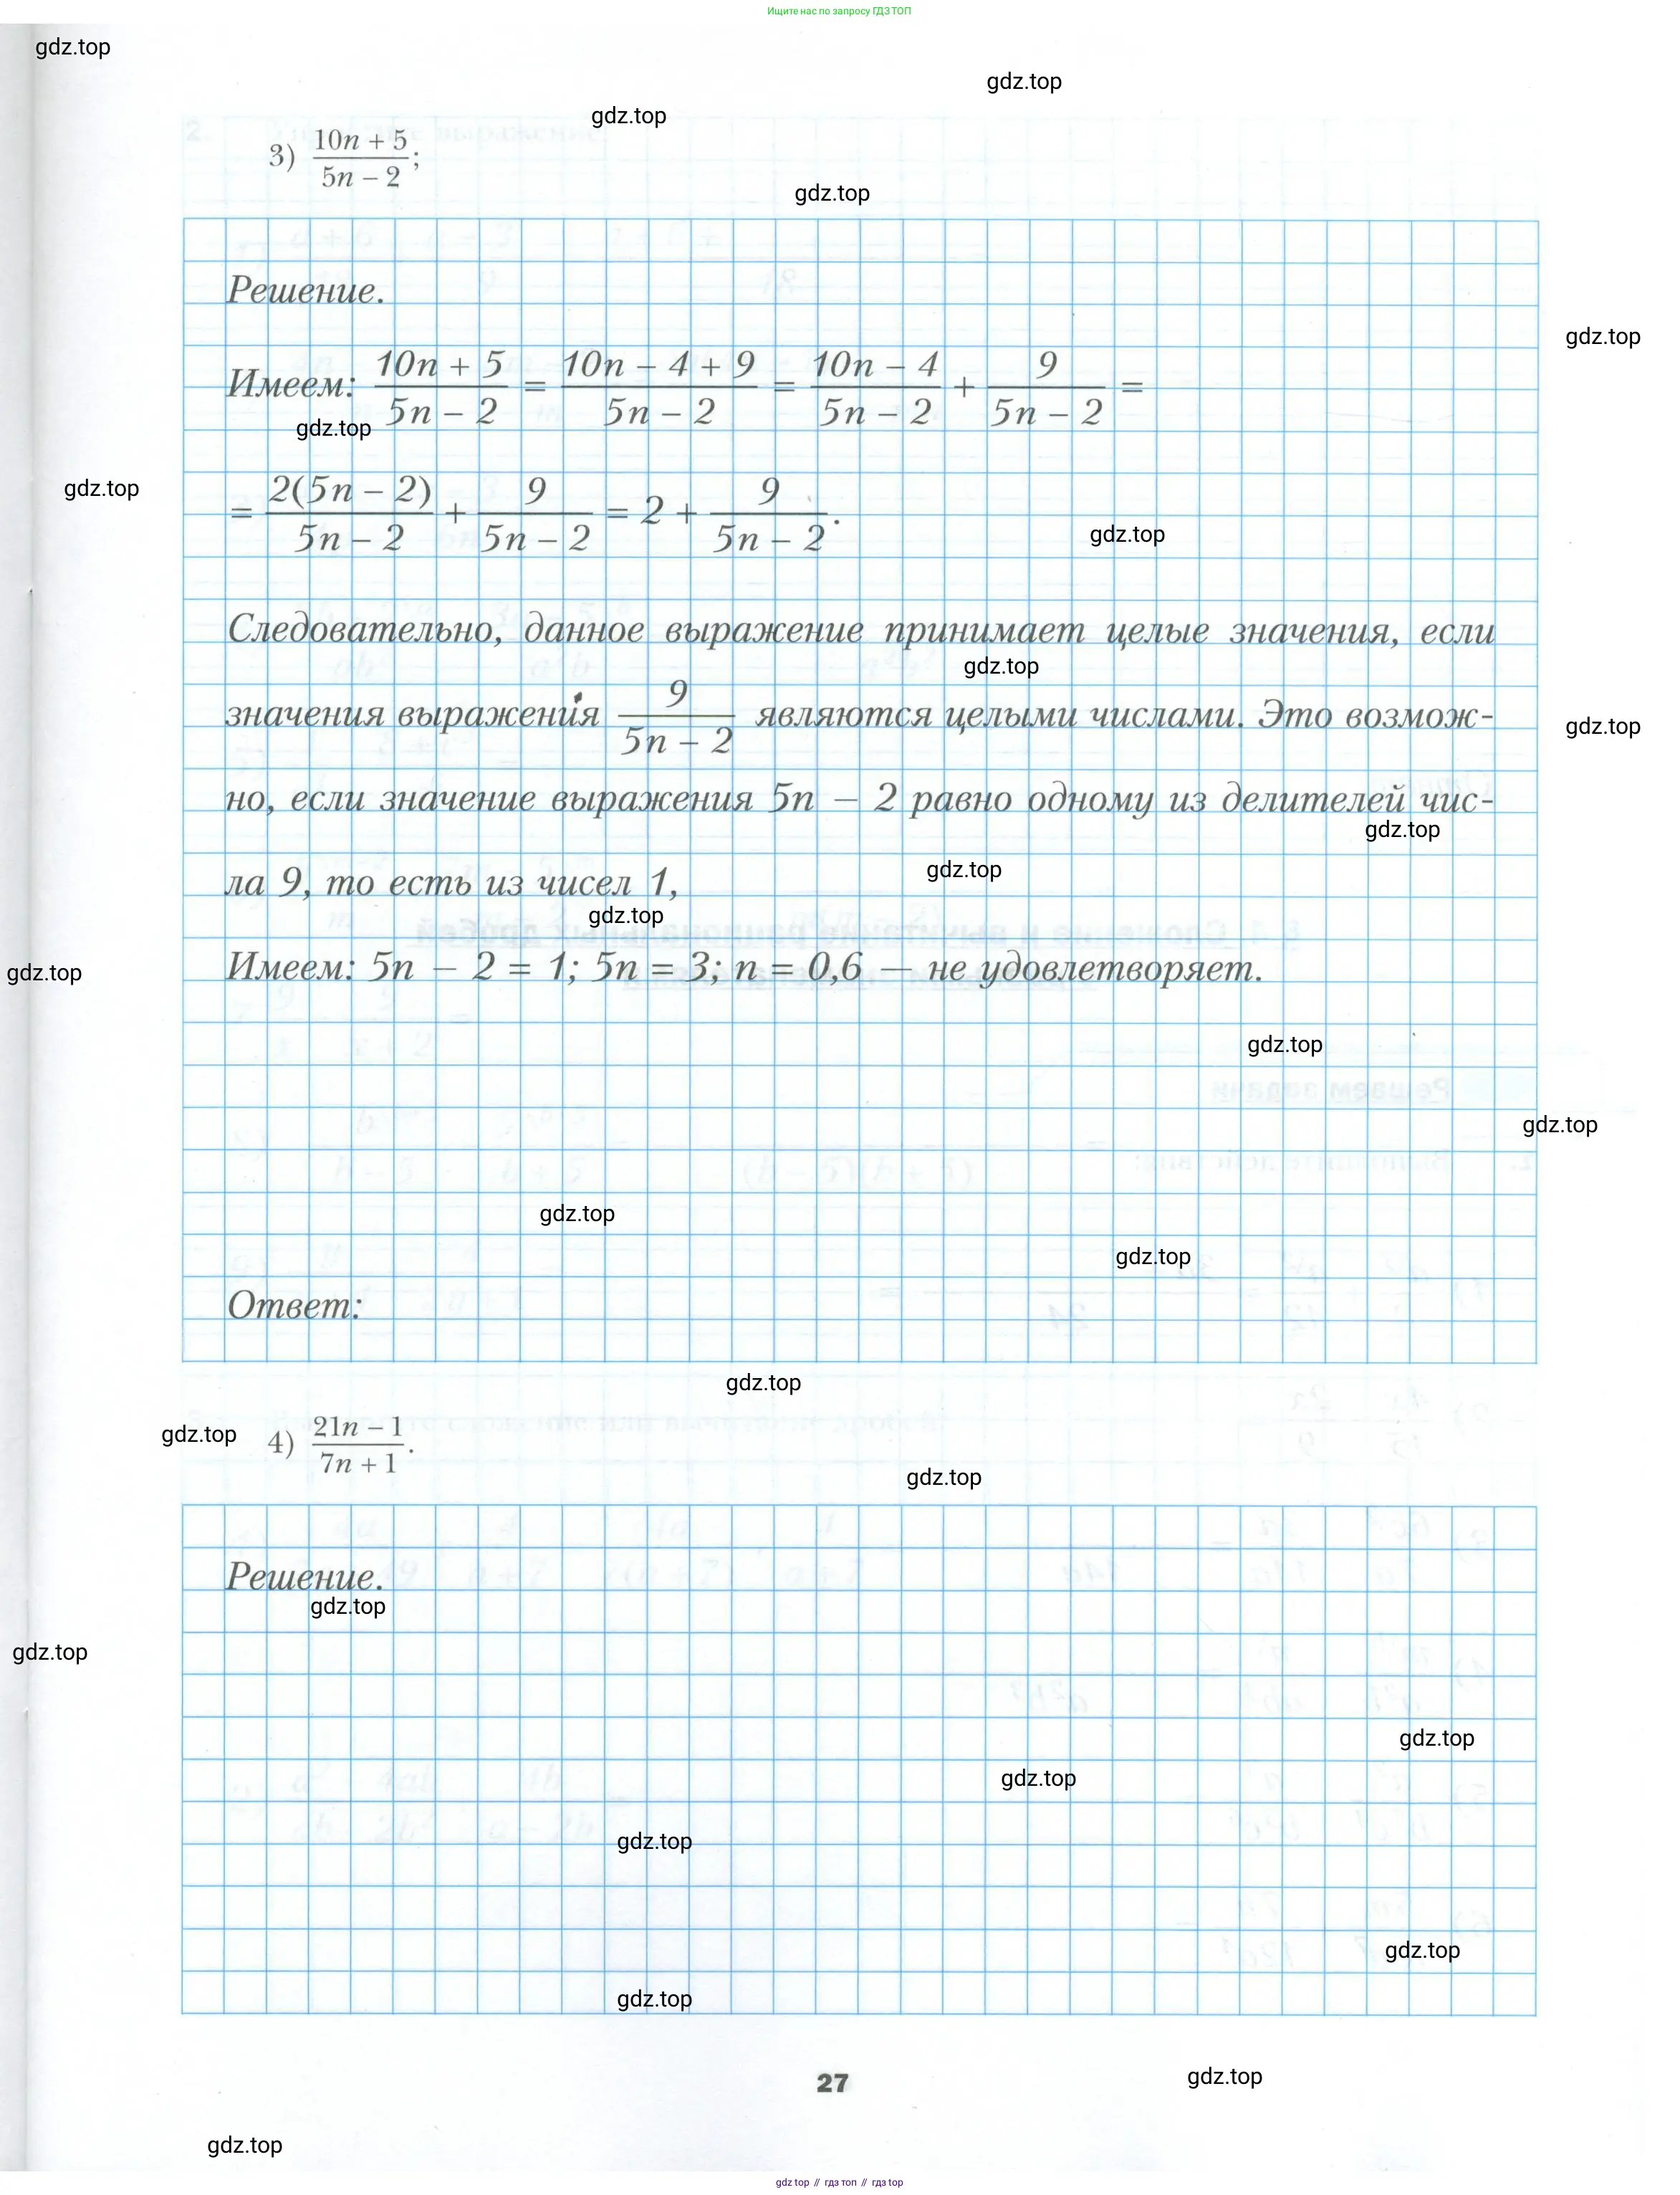 Ищите нас по запросу ГДЗ ТОП
gdz.top
gdz.top
gdz.top
3) \frac{10n + 5}{5n − 2};
gdz.top
Решение.
gdz.top
Имеем: \frac{10n + 5}{5n − 2} = \frac{10n − 4 + 9}{5n − 2} = \frac{10n − 4}{5n − 2} + \frac{9}{5n − 2} =
gdz.top
gdz.top
= \frac{2(5n − 2)}{5n − 2} + \frac{9}{5n − 2} = 2 + \frac{9}{5n − 2}.
gdz.top
Следовательно, данное выражение принимает целые значения, если
gdz.top
значения выражения \frac{9}{5n − 2} являются целыми числами. Это возмож-
gdz.top
но, если значение выражения 5n − 2 равно одному из делителей чис-
gdz.top
gdz.top
ла 9, то есть из чисел 1,
gdz.top
Имеем: 5n − 2 = 1; 5n = 3; n = 0,6 — не удовлетворяет.
gdz.top
gdz.top
gdz.top
gdz.top
gdz.top
Ответ:
gdz.top
gdz.top
4) \frac{21n − 1}{7n + 1}.
gdz.top
Решение.
gdz.top
gdz.top
gdz.top
gdz.top
gdz.top
gdz.top
gdz.top
27
gdz.top
gdz.top
gdz top // гдз топ // гдз top